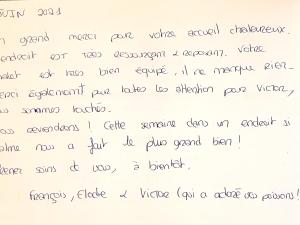 JUIN 2021
n grand merci pour votre accueil chaleureux.
endroit est très ressourçant & reposant. Votre
alet est très bien équipé, il ne manque rien.
erci également pour toutes les attention pour Victor,
us sommes touchés.
ous reviendrons ! Cette semaine dans un endroit si
alme nous a fait le plus grand bien !
enez soins de vous, à bientôt.
François, Elodie & Victor (qui a adoré vos poissons!